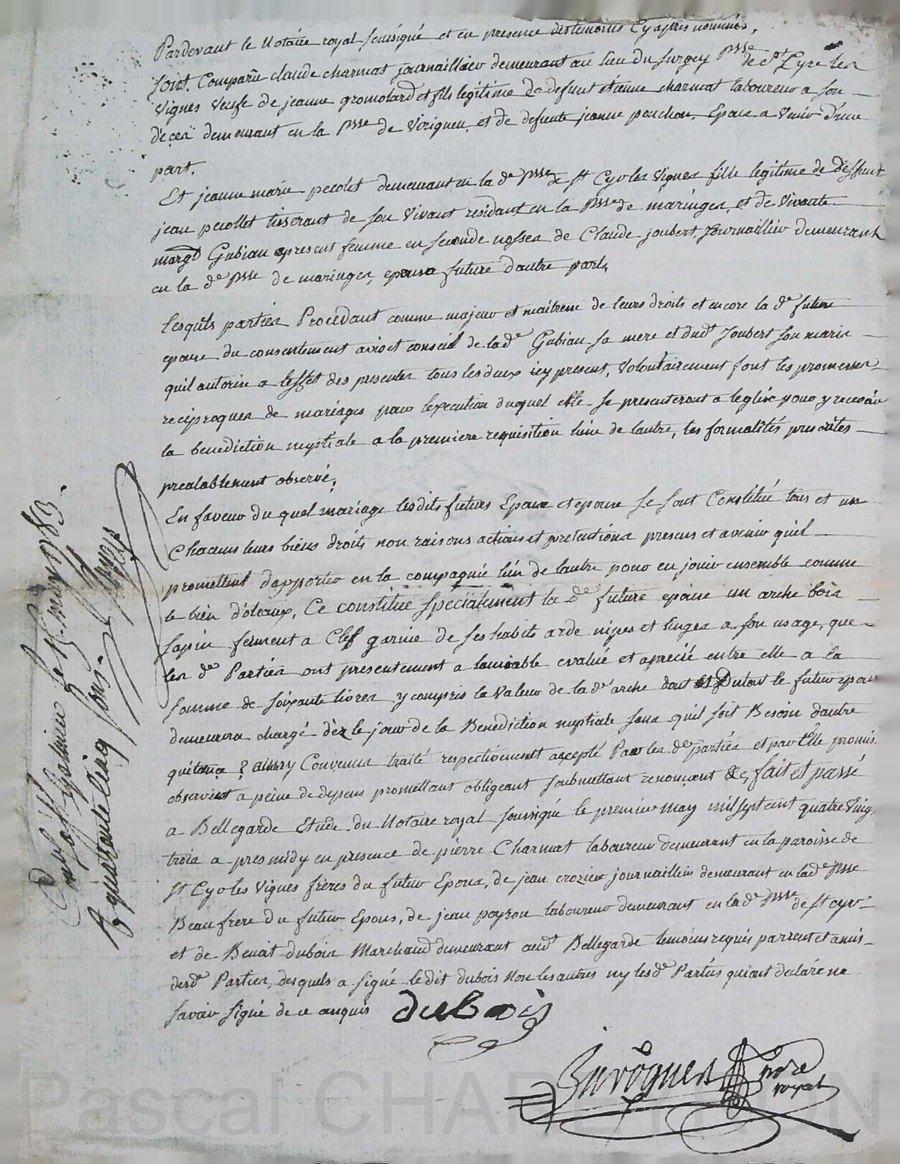 Pardevant le Notaire royal soussigné et en presence des temoins Cy après nommés,
sont Comparu claude charmat journaillier demeurant au lieu du surgey psse de st Cyre les
vignes veufe de jeanne gromolard et fils légitime de defunt etienne charmat laboureur a son
déces demeurant en la psse de Virigneu, et de defunte jeanne ponchon, Epoux a Venir d'une
part.
Et jeanne marie pecolet demeurant en la de psse de st Cyr les vignes fille legitime de deffunt
jean pecollet tisserant de son vivant residant en la psse de maringes, et de vivante
margte Gubian apresent femme en seconde nosses de Claude joubert, journaillier demeurant
en la de psse de maringes, epouse future d'autre part,
Lesquels parties Procedant comme majeur et maitresse de leurs droits et encore la de future
epouse du consentement avis et conseil de lade Gubian sa mere et dudt Joubert son maris
quil autorise a leffet des presentes tous les deux icy present, Volontairement font les promesses
reciproques de mariages pour lexecution duquel elle se presenteront a leglise pour y recevoir
la benediction nuptiale a la premiere requisition lune de lautre, les formalités prescrites
prealablement observé,
En faveur du quel mariage lesdits futurs Epoux et epouse se sont Constitué tous et un
Chacuns leurs biens droits non raisons actions et pretentions presens et avenir quil
promettent d'apporter en la compagnée l'un de lautre pour en jouir ensemble comme
le bien d'oteaux, Ce constitue specialement la de future epouse un arche bois
sapin ferment a Clef garnie de ses habits arde nipes et linges a son usage, que
les des Parties ont presentement a lamiable evalué et aprecié entre elle a la
somme de soixante livres y compris la valeur de la de arche dont et Dutout le futur epoux
demeurera chargé dès le jour de la Benediction nuptiale sans quil soit Besoin d'autre
quitance aussy Convenus traité respectivement accepté Par les des parties et par Elle promis
observer a peine de depens promettant obligeant soubmettant renonçant &c, fait et passé
a Bellegarde Etude du Notaire royal soussigné le premier may mil sept cent quatre vingt
trois a pres midy en presence de pierre Charmat laboureur demeurant en la paroisse de
st Cyr les Vignes frères du futur Epoux, de jean crozier journaillier demeurant en lade psse
Beau frere du futur Epous, de jean poyron laboureur demeurant en lade psse de st cyr
et de Benoit dubois Marchand demeurant audt Bellegarde temoins requis parrent et amis
desdt Parties, desquels a signé ledit dubois Non les autres ny lesdt Parties qui ont declaré ne
savoir signé de ce anquis
dubois
nore
royal
le 15 may 1783.
quarante cinq sous
Pascal